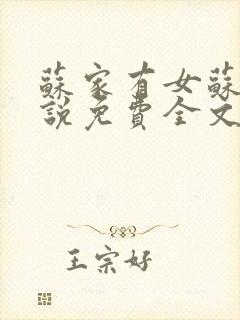 蘇家有女蘇
說免費全文
王宗好